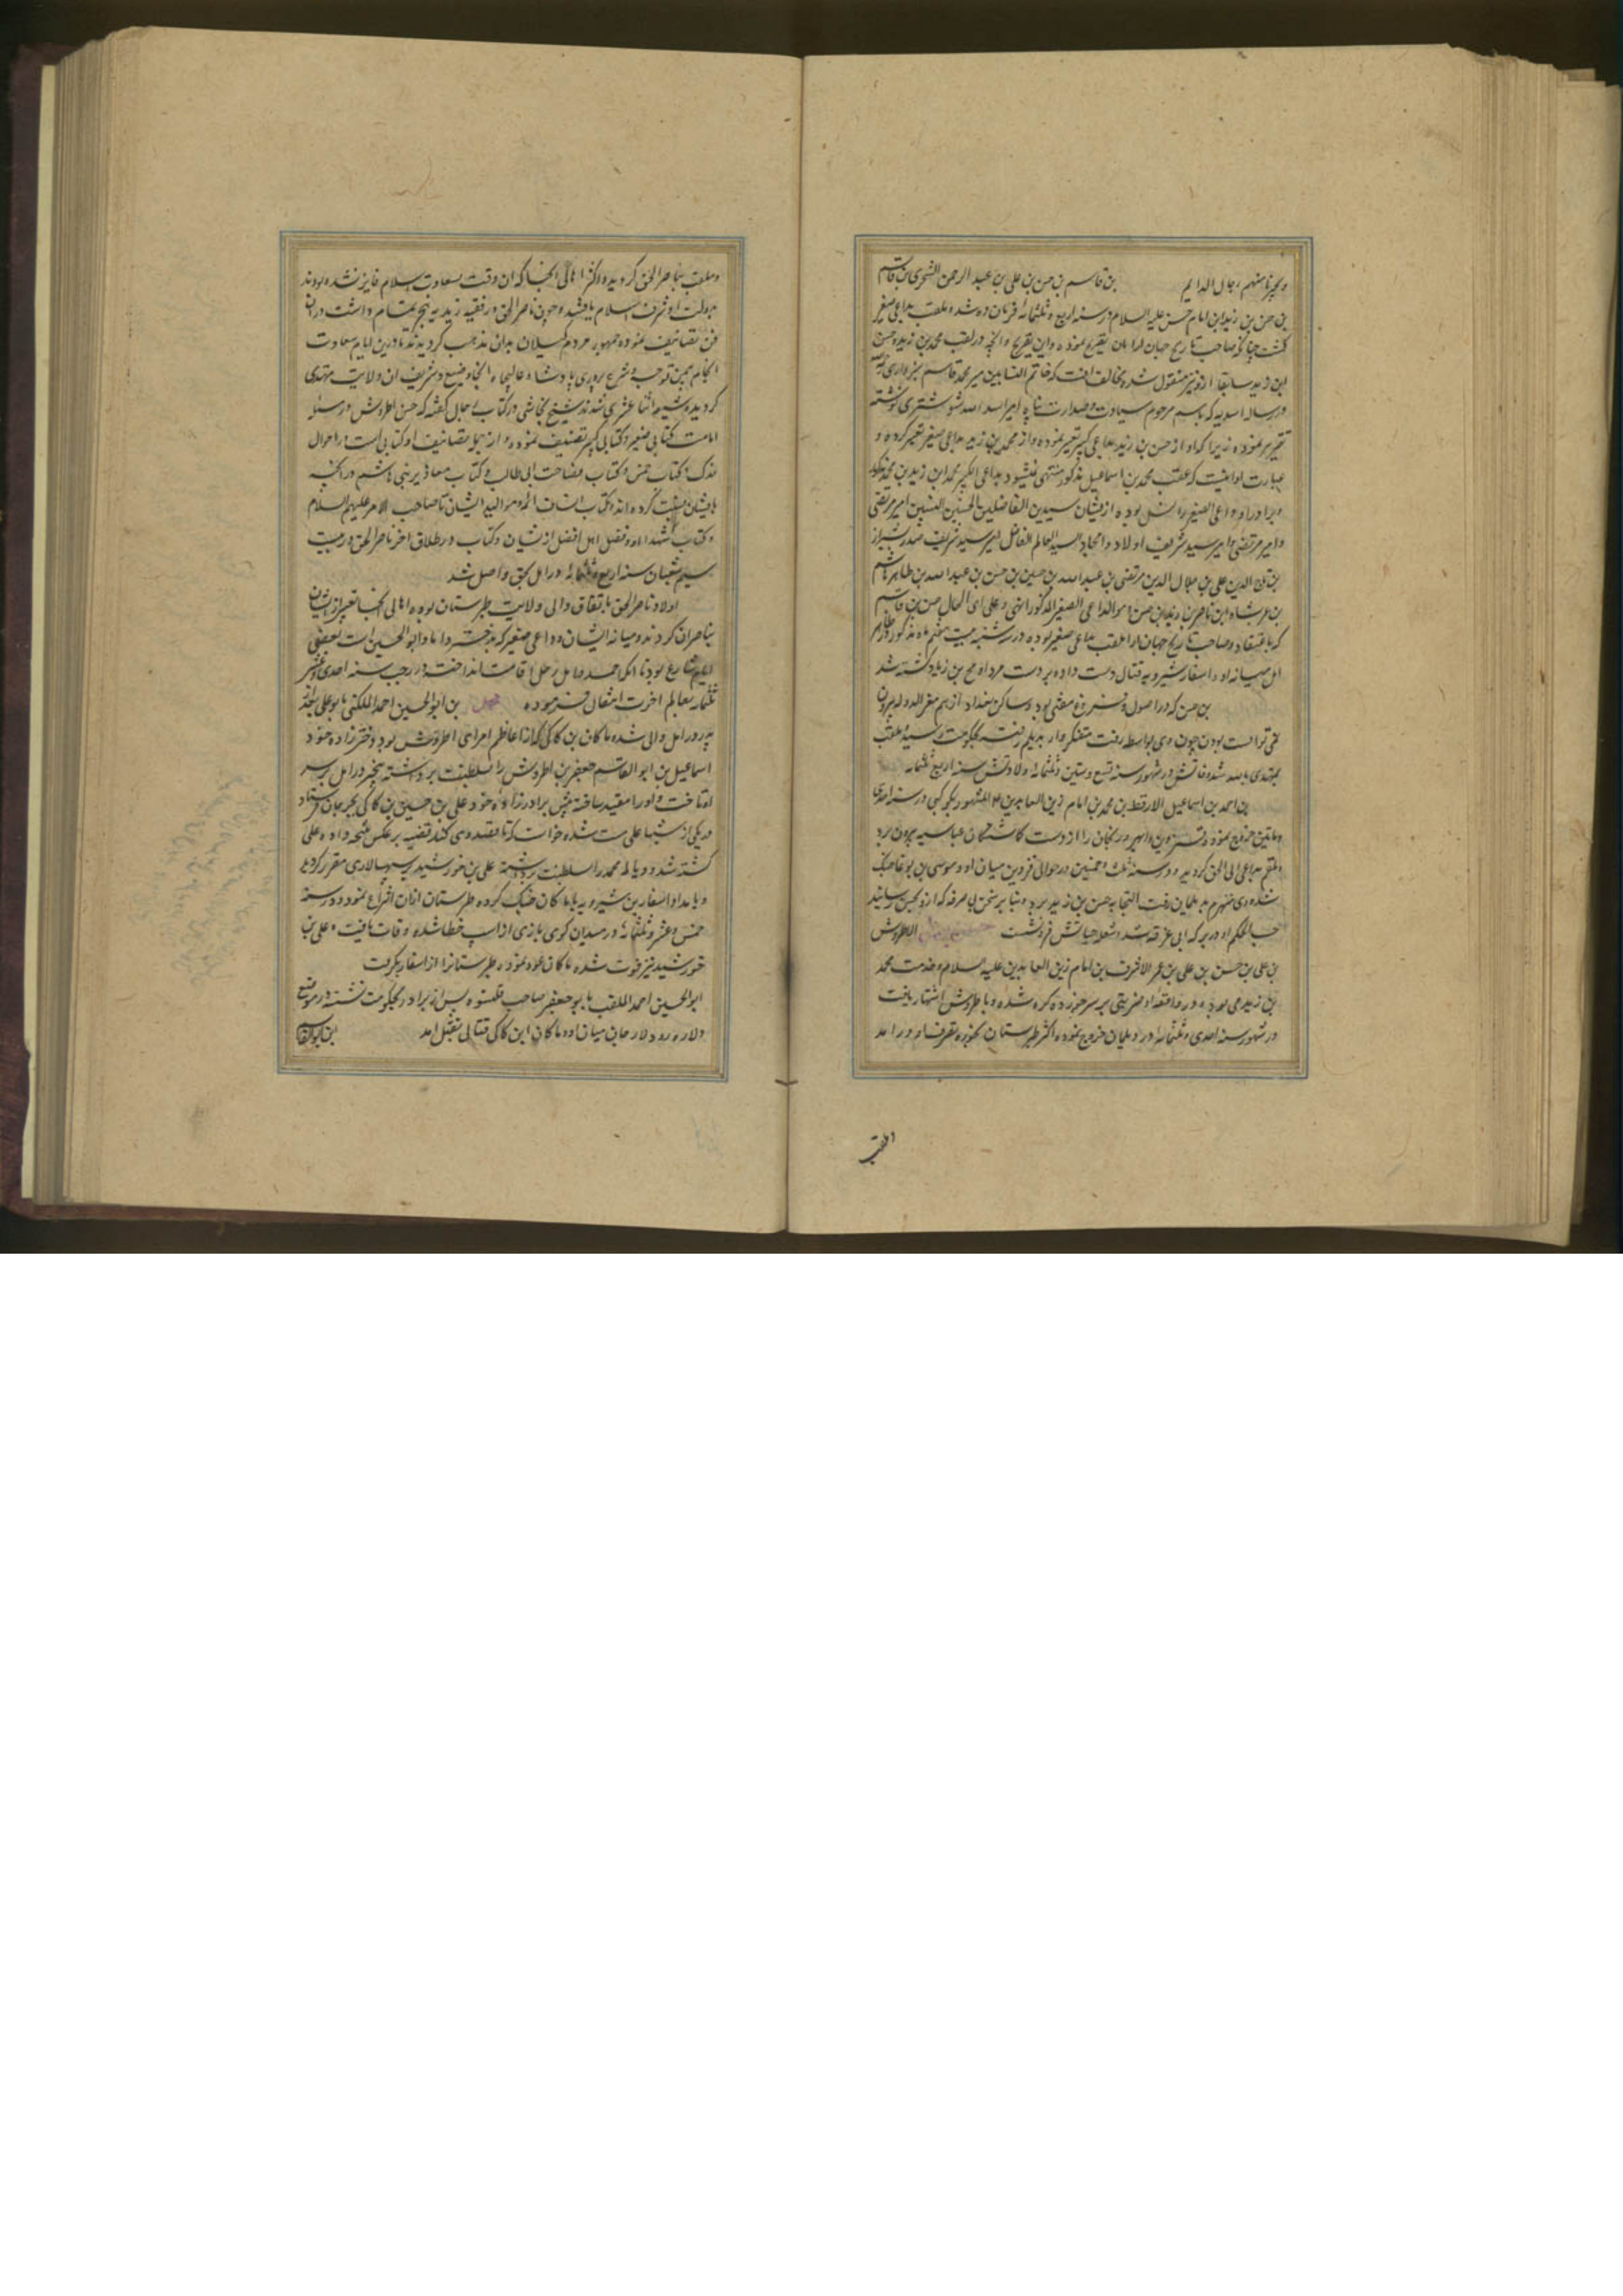 بن قاسم بن حسن بن علی بن عبد الرحمن الشجری بن قاسم
بن حسن بن زید ابن امام حسن علیه السلام در سنه اربع و ثلثمائه فرمان ده شد و ملقب بداعی صغیر
گشت چنانکه صاحب تاریخ جهان ارا بان تصریح نموده و این تصریح و انچه در لقب محمد بن زید و حسن
ابن زید سابقا از و نیز منقول شده مخالف انست که خاتم النسابین میر محمد قاسم سبزواری
در رساله اسدیه که باسم مرحوم سیادت و صدارت پناه امیر اسد الله شوشتری نوشته
تقریر نموده زیرا که او از حسن بن زید بداعی کبیر تعبیر نموده و از محمد بن زید بداعی صغیر تعبیر کرده و
عبارت او اینست که عقب محمد بن اسماعیل مذکور منتهی میشود بداعی الکبیر محمد ابن زید بن محمد
و برادر او داعی الصغیر را نسل بوده از یشان سیدین الفاضلین امیر مرتضی
و امیر مرتضی و امیر سید شریف اولاد و امجاد السید العالم الفاضل میر سید شریف صدر شیراز
بن تاج الدین علی بن جلال الدین مرتضی بن عبد الله بن حسین بن حسن بن عبد الله بن طاهر هاشم
بن عرب شاه ابن ناصر بن زید بن حسن و هو الداعی الصغیر المذکور انتهی و علی ای الحال حسن بن قاسم
که باعتقاد صاحب تاریخ جهان ارا ملقب بداعی صغیر بوده در سه شنبه بیست هفتم ماه مذکور
امل میانه او و اسفار شیرویه قتال دست داده بر دست مرداویج بن زیاد کشته شد
بن حسن که در اصول و فروع مفتی بود و ساکن بغداد از بیم معز الدوله بیرون
نمی توانست بودن چون وی بواسطه رفت متفکروار بدیلم رفته بحکومت رسید ملقب
بمهتدی بالله شد وفاتش در شهور سنه تسع و ستین و ثلثمائه ولادتش سنه اربع ثلثمائه
بن احمد بن اسماعیل الارقط بن محمد بن امام زین العابدین المشهور بکوکبی در سنه احدی
و ماتین خروج نموده قزوین و ابهر و زنجان را از دست کاشتکان عباسیه بیرون برد
و ملقب بداعی الی الحق کردید و در سنه ثلث و خمسین در حوالی قزوین میان او و موسی بن بوغا جنک
شده وی منهزم بدیلمان رفت التجا به حسن بن زید برد و بنا بر سخن بی صرفه که از و بحسن رسانید
حسب الحکم او در برکه ابی غرقه شد و شعله حیاتش فرو نشست الاطروش
بن علی بن حسن بن علی بن عمر الاشرف بن امام زین العابدین علیه السلام و خدمت محمد
بن زید می بوده در واقعه او ضربتی بر سر خورده کر شده و با طروش اشتهار یافت
در شهور سنه احدی و ثلثمائه در دیلمان خروج نموده اکثر طبرستان بحوزه تصرف او در امد
و ملقب بناصر الحق کردیده و اکثر اهالی انجا که ان وقت بسعادت اسلام فایز نشده بودند
بدولت او شرف اسلام یافتند و چون ناصر الحق در فقیه زیدیه تبحر تمام داشت دران
فن تصانیف نموده جمهور مردم کیلان بدان مذهب کردیدند تا درین ایام سعادت
انجام بیمن توجه و شرع پروری پادشاه عالیجاه انجا وضیع و شریف ان ولایت مهتدی
کردیده و شیعه اثنا عشری شدند شیخ نجاشی در کتاب رجال کفته که حسن اطروش در مسئله
امامت کتابی صغیر و کتابی کبیر تصنیف نموده و از جمله تصانیف او کتابی است در احوال
فدک و کتاب خمس و کتاب فصاحت ابی طالب و کتاب معاذیر بنی هاشم در انچه
بایشان نسبت کرده اند و کتاب انساب ائمه و موالید ایشان تا صاحب الامر علیهم السلام
و کتاب شهدا و فضل اهل افضل از یشان و کتاب در طلاق اخر ناصر الحق در بیست
سیم شعبان سنه اربع و ثلثمائه در امل بحق واصل شد
اولاد ناصر الحق باتفاق والی ولایت طبرستان بوده اهالی انجا تعبیر از یشان
بناصران کردند و میانه ایشان و داعی صغیر که بدختر داماد ابو الحسین است بعضی
تنازع بود تا انکه احمد حامل رحل اقامت انداخت و در رجب سنه احدی عشر
ثلثمائه بعالم اخرت انتقال فرموده بن ابو الحسین احمد المکنی بابو علی بعد
پدر در امل والی شده ماکان بن کاکی که از اعاظم امرای اطروش بود دخترزاده خود
اسماعیل بن ابو القاسم جعفر بن اطروش را بسلطنت برداشته بخبر در امل بر سر
او تاخت و او را مقید ساخته پیش برادرزاده خود علی بن حسین بن کاکی بجرجان فرستاد
در یکی از شبها علی مست شده خواست که تا قصد وی کند قضیه بر عکس نتیجه داده علی
کشته شد و دیالمه محمد را بسلطنت برداشته علی بن خورشید بسپهسالاری مقرر کردند
و بامداد اسفار بن شیرویه با ماکان جنک کرده طبرستان ازان انتزاع نمود و در سنه
خمس و عشر و ثلثمائه در میدان کوی بازی از اسب خطا شده وفات یافت و علی بن
خورشید نیز فوت شده ماکان عود نموده طبرستانرا از اسفار بکرفت
ابو الحسین احمد الملقب بابو جعفر صاحب قلنسوه پس از برادر بحکومت نشسته در موضع
ولاره رود لارجان میان او و ماکان ابن کاکی قتالی بفعل امد بن ابو القا